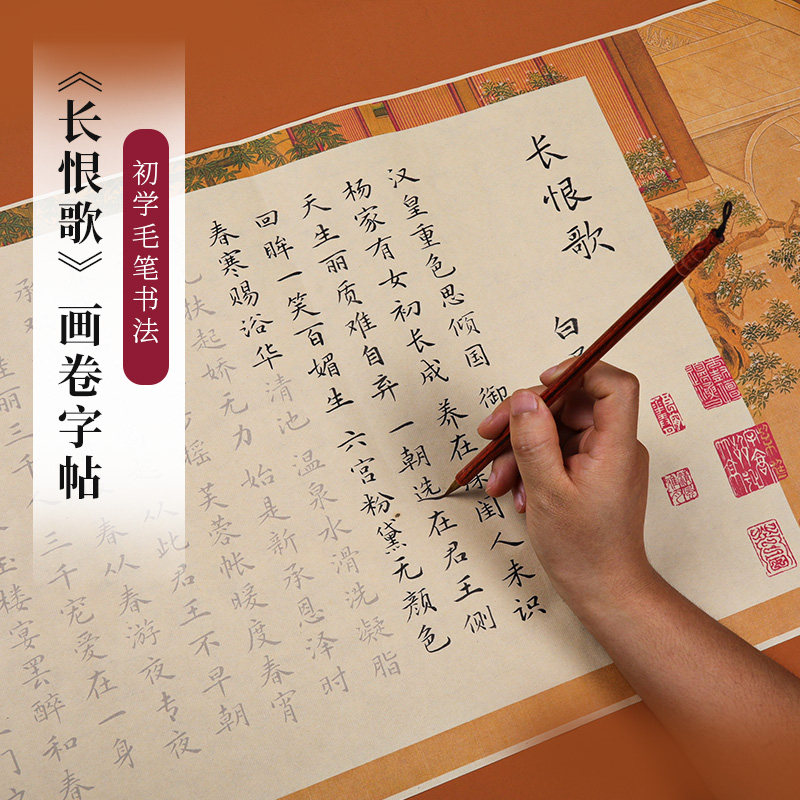 《长恨歌》画卷字帖
初学毛笔书法
长恨歌
白
汉皇重色思倾国 御
杨家有女初长成 养在深闺人未识
天生丽质难自弃 一朝选在君王侧
回眸一笑百媚生 六宫粉黛无颜色
春寒赐浴华清池 温泉水滑洗凝脂
扶起娇无力 始是新承恩泽时
摇 芙蓉帐暖度春宵
从此君王不早朝
承 春从春游夜专夜
丽三千人 三千宠爱在一身
玉楼宴罢醉和春
门